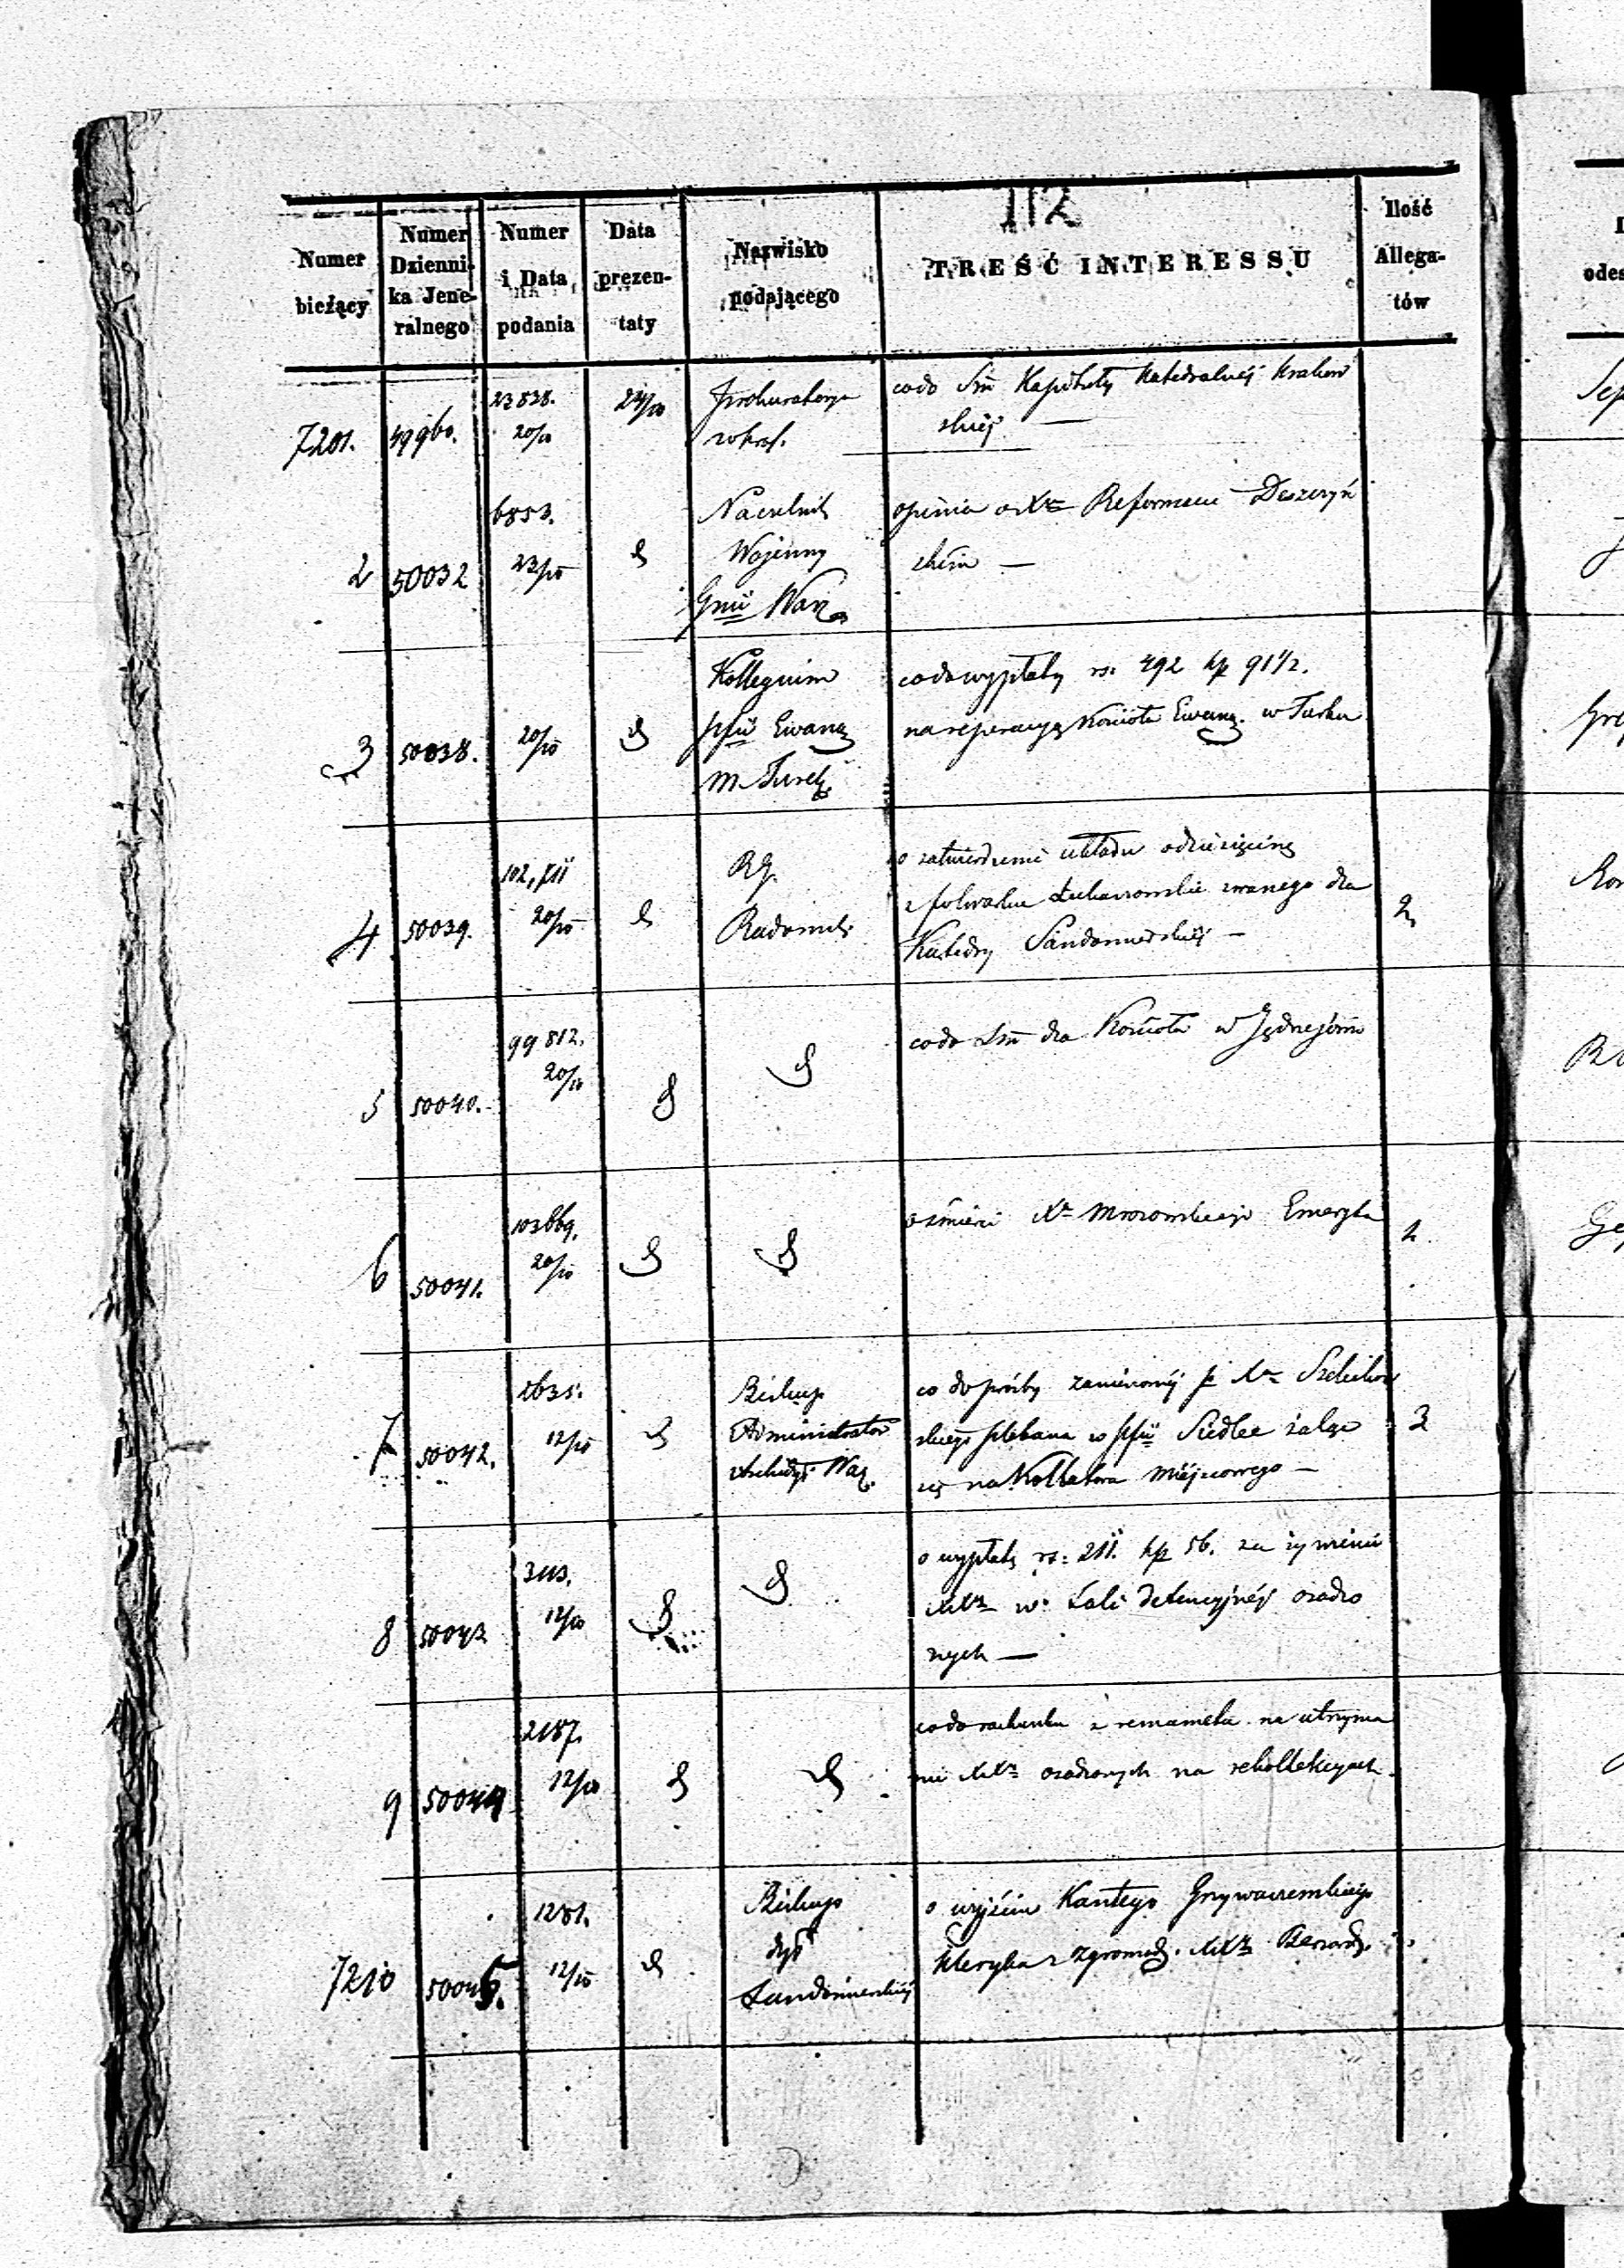 Numer bieżący
Numer Dziennika Jeneralnego
Numer i Data podania
Data prezentaty
Nazwisko podającego
TREŚĆ INTERESSU
Ilość Allegatów
7201. 49960. 23838. 20/10 24/10 Prokuratorya
codo Sm Kapituły Katedralnej Krakow
skiej —
2 50032 6853. 23/10
Naczelnik
Wojenny
Gnii Warz
opinia o Xe Reformacie Deszczyń
skim —
3 50038. 20/10
Kollegium
pfii Ewang
m. Turek
codo wypłaty rs. 492 kp 91 1/2.
na reperacyą Kościoła Ewang. w Turku
4 50039. 20/10
RG.
Radomsk
o zatwierdzenie układu o dziesięcinę
z folwarku zwanego dla
Katedry Sandomierskiej — 2
5 50040. 99812. 20/10
codo Sm dla Kościoła w Jędrzejowie
6 50041. 103669. 20/10
o śmierci Xa Mrozowskiego Emeryta 1.
7 50042. 2635. 12/10
Biskup
Administrator
Archidyi Warz.
co do prośby zaniesionej p Xa
skiego plebana w pfii Siedlec żalące
się na Kollatora miejscowego — 3
8 50043 12/10
o wypłatę rs: 211. kp 56. za żywienie
XXży w Sali detencyjnej osadzo
nych —
9 50044 2187. 12/10
codo rachunku z remanentu na utrzyma
nie XXży osadzonych na rekollekcyach.
7210 50045. 1281. 12/10
Biskup
dyi
Sandomierskiej
o wyjściu Kantego Grzywaczewskiego
Kleryka z zgromadz. XXży Bernard.